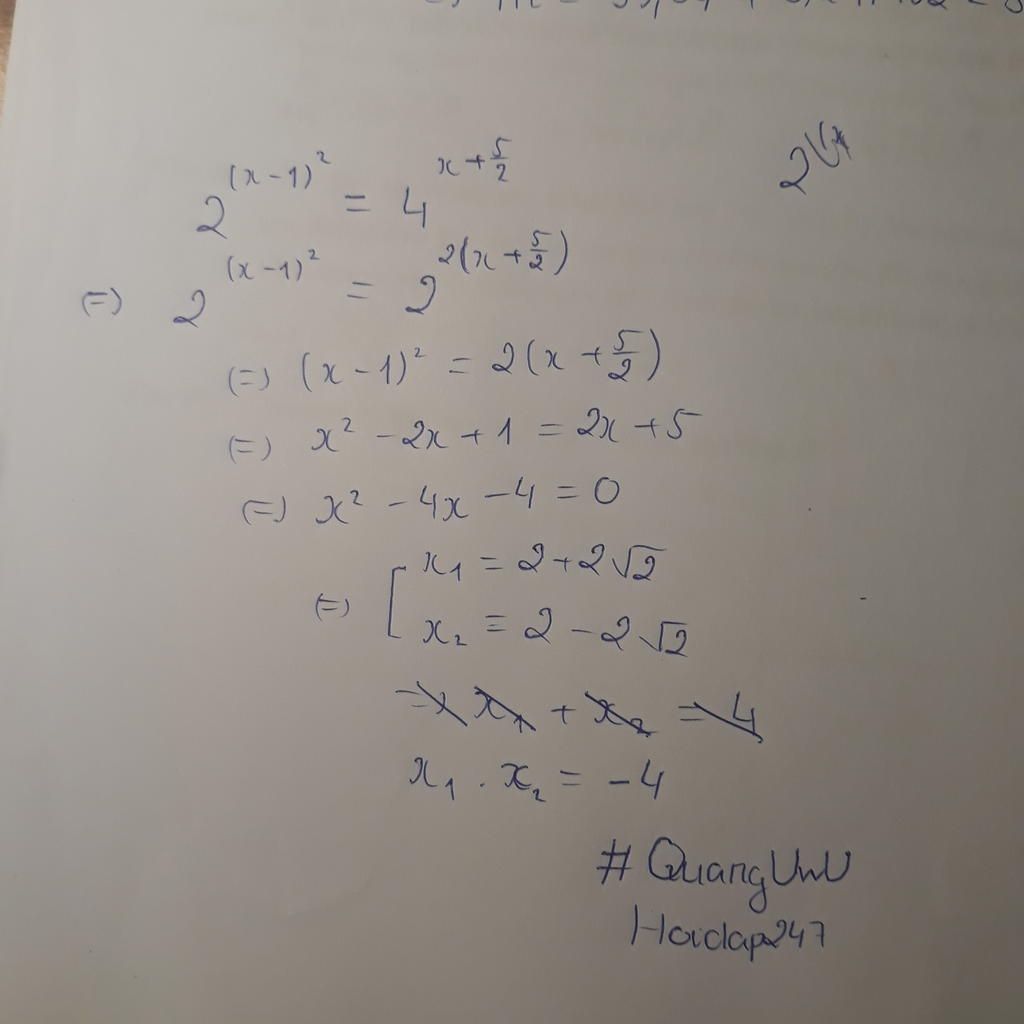 2^{(x-1)^2} = 4^{x+\frac{5}{2}}
(=) 2^{(x-1)^2} = 2^{2(x+\frac{5}{2})}
(=) (x-1)^2 = 2(x+\frac{5}{2})
(=) x^2 - 2x + 1 = 2x + 5
(=) x^2 - 4x - 4 = 0
(=) [ x_1 = 2 + 2\sqrt{2}
x_2 = 2 - 2\sqrt{2}
=> x_1 + x_2 = 4
x_1 . x_2 = -4
# QuangUwU
Hoidap247